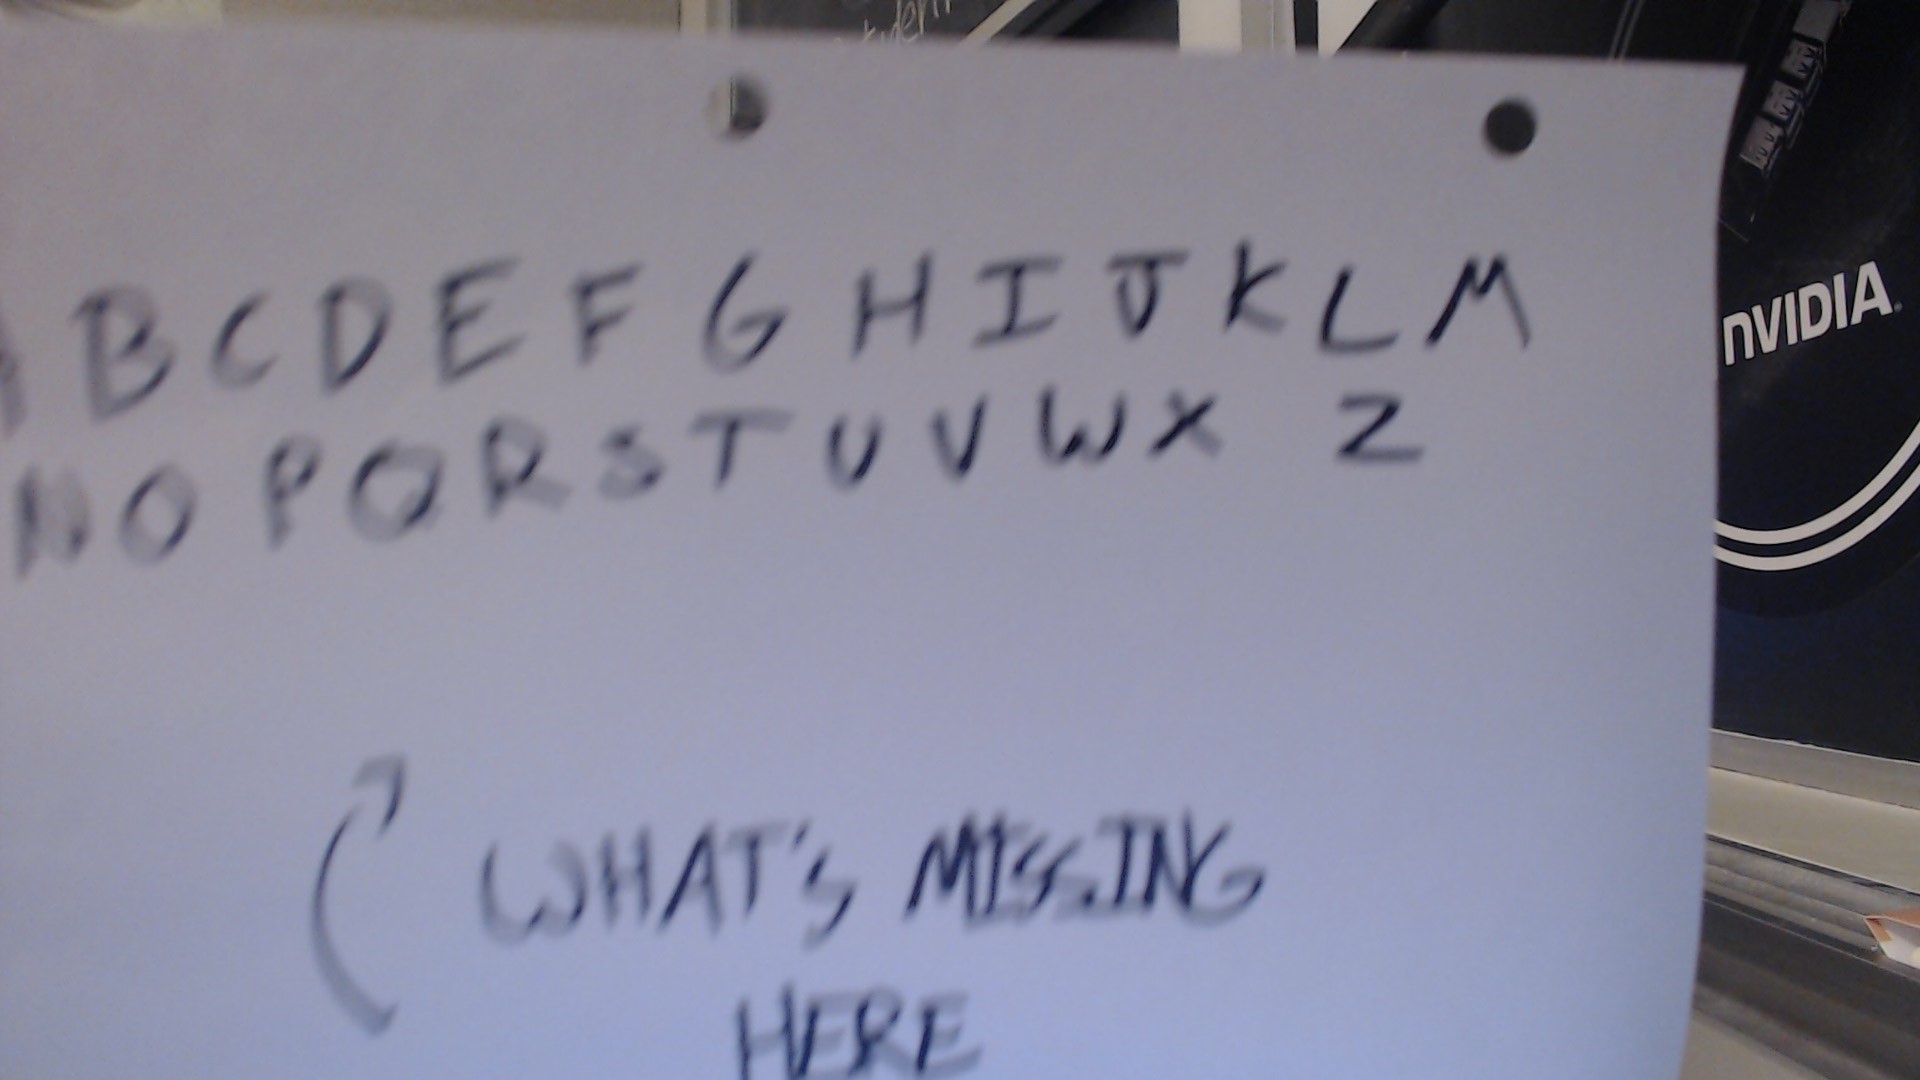 A B C D E F G H I J K L M
N O P Q R S T U V W X Z
WHAT'S MISSING
HERE
NVIDIA.